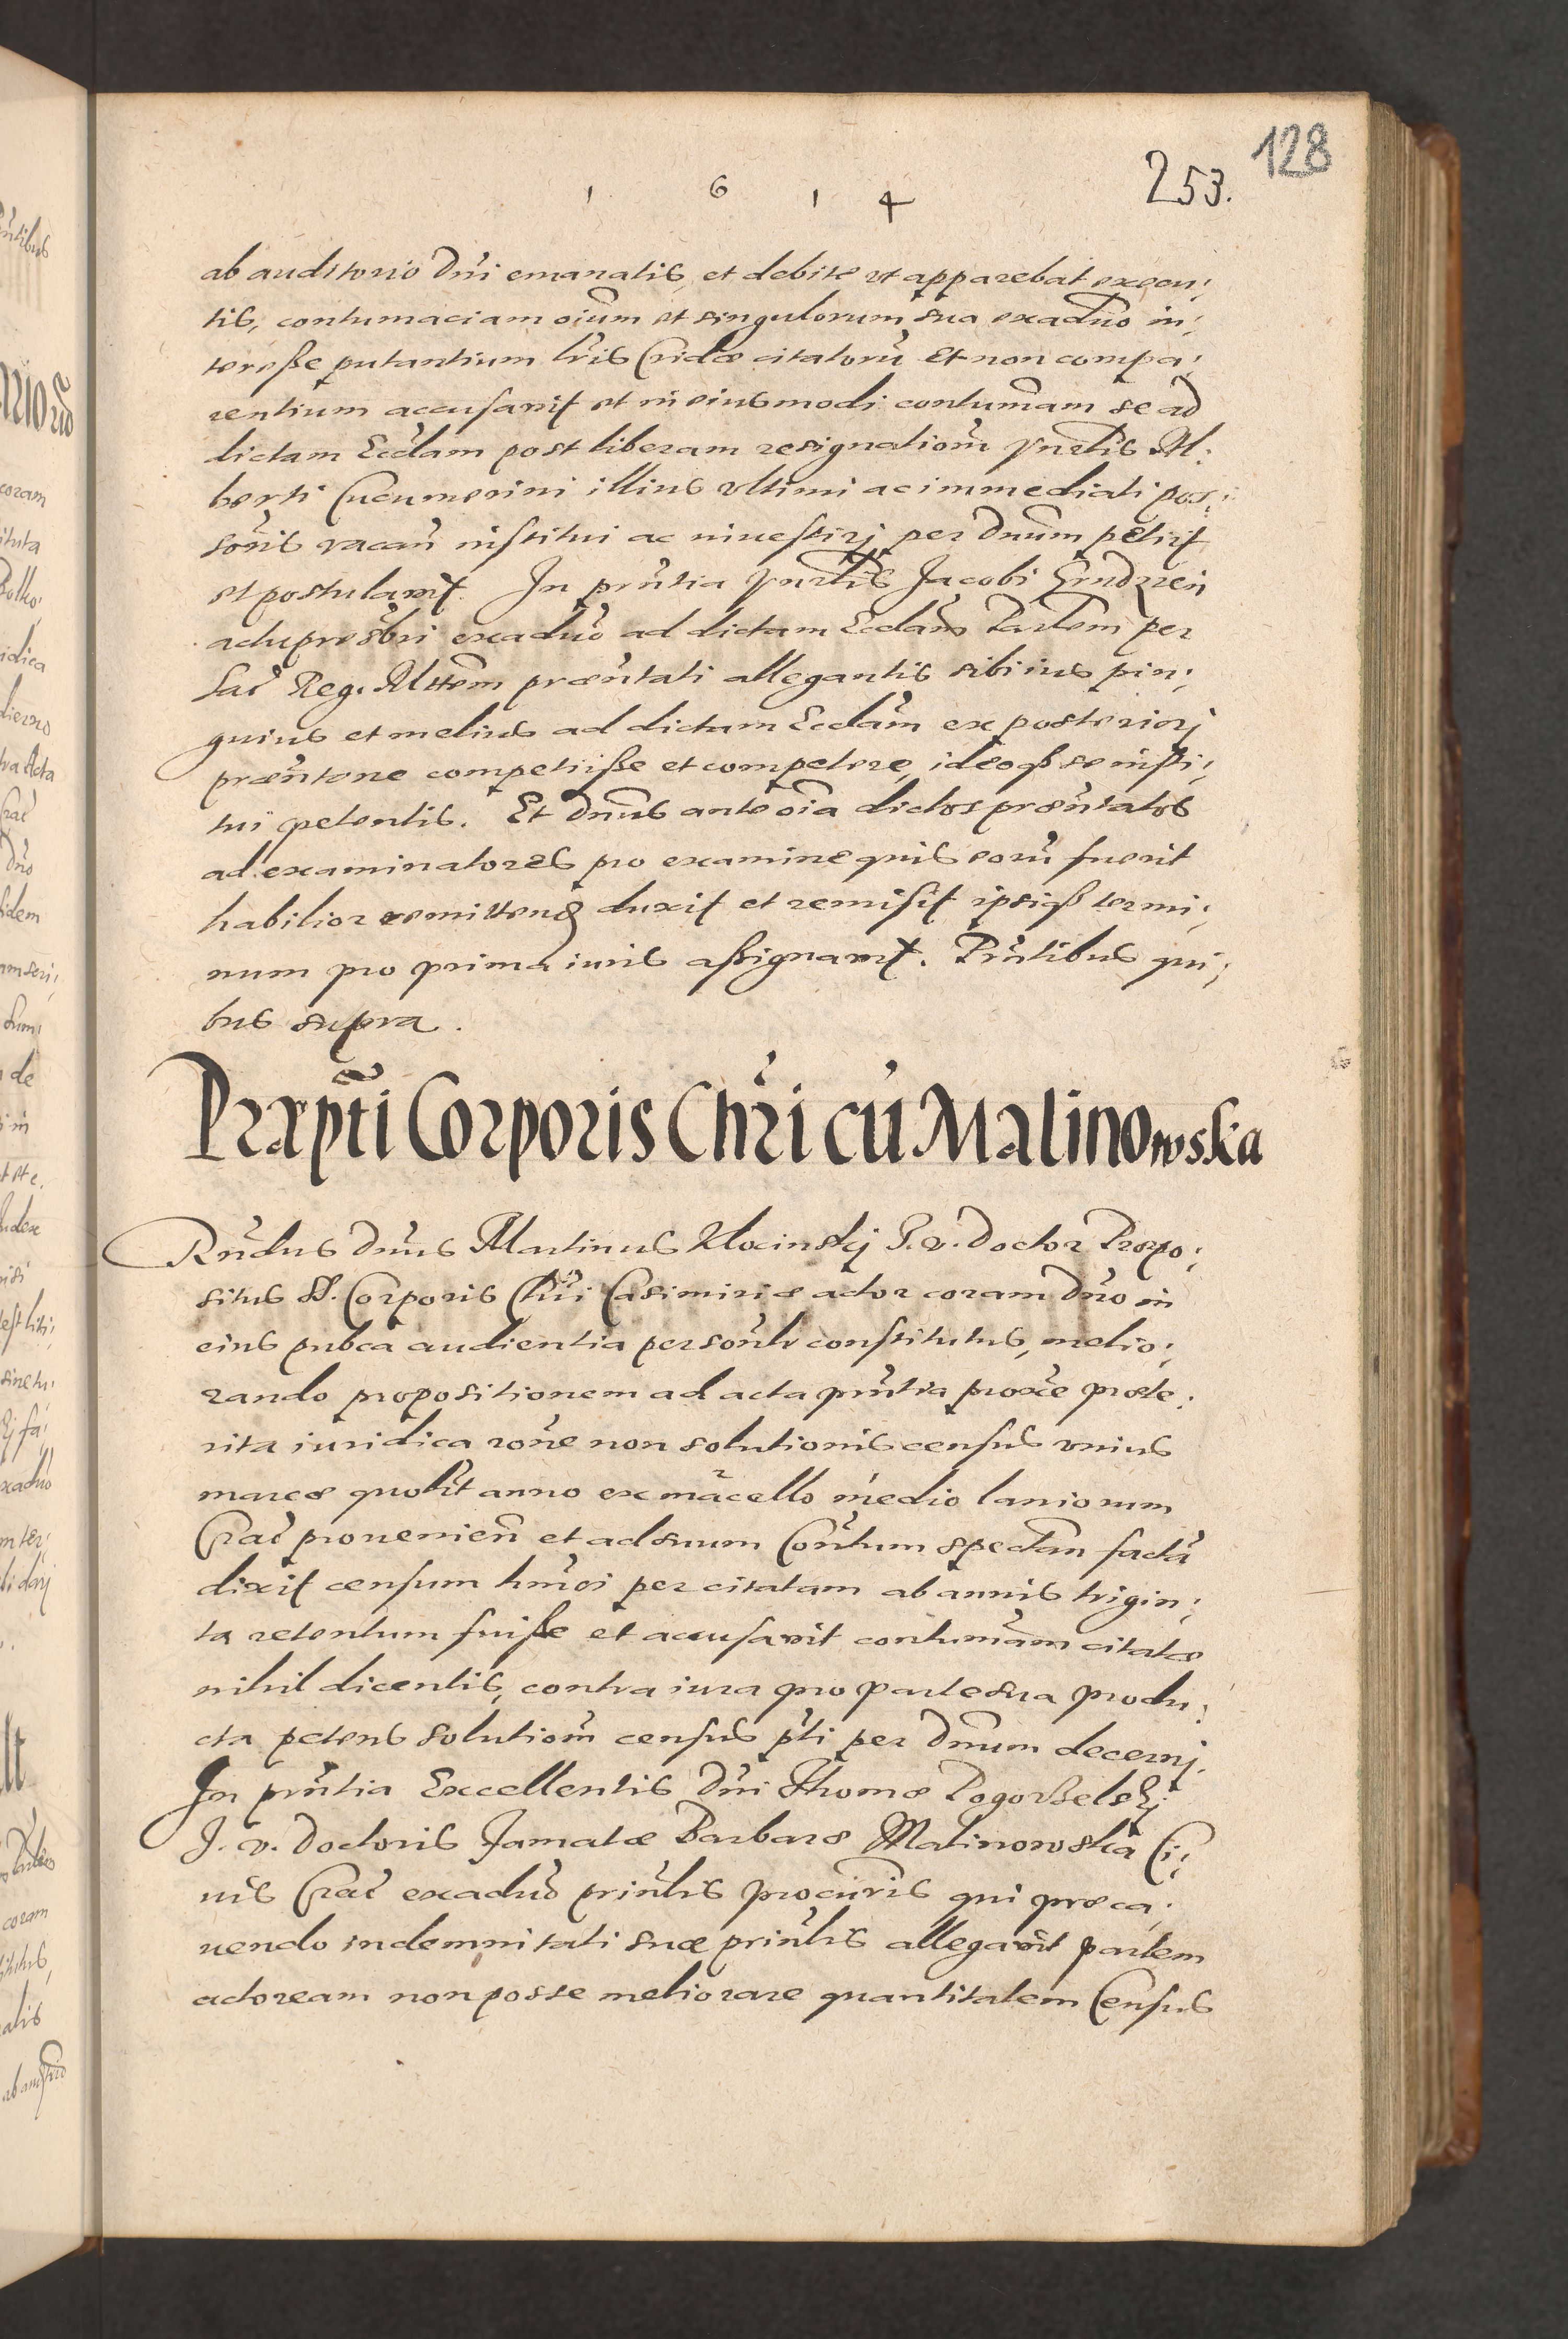 128
253.
1 6 1 4
ab auditorio Dni emanatis, et debite ut apparebat execu;
tis, contumaciam oium et singulorum sua exaduo in;
teresse putantium lris Cridæ citatoru Et non compa;
rentium accusavit et in eiusmodi contumam se ad
dictam Ecclam post liberam resignationm Al;
berti Cucumerini illius ultimi ac immediati pos;
soris vacan institui ac investirj per Dnum petiit
et postulavit. In pntia Jacobi
actu presbri exaduo ad dictam Ecclam Parlem per
Sac Reg. Mttem præntati allegantis sibi ius pin;
guius et melius ad dictam Ecclam ex posteriorj
præntone competiisse et competere, ideoq se insti;
tui petentis. Et Dnus ante oia dictos præntatos
ad examinatores pro examine quis eoru fuerit
habilior remittend duxit et remisit ipsisq termi;
num pro prima iuris assignavit. Pntibus qui;
bus supra.
Præpti Corporis Chri cu Malinowska
Rndus Dnus Martinus Kłocinskj J. v. Doctor Præpo;
situs SS. Corporis Chri Casimiriæ actor coram Dno in
eius pubca audientia personlr constitutus, melio;
rando propositionem ad acta pntia proxe præte;
rita iuridica rone non solutionis census unius
marcæ quolibt anno ex macello medio laniorum
Crac provenien et ad suum Contum spectan facta
dixit censum hmoi per citatam ab annis trigin;
ta retentum fuisse et accusavit contumam citatæ
nihil dicentis, contra iura pro parte sua produ;
cta petens solutiom census pti per Dnum decernj.
In pntia Excellentis Dni Thomæ
J. v. Doctoris Famatæ Barbaræ Malinowska Ci;
vis Crac exaduo prinlis procuris qui præca;
vendo indemnitati suæ prinlis allegavit partem
actoream non posse meliorare quantitatem Census